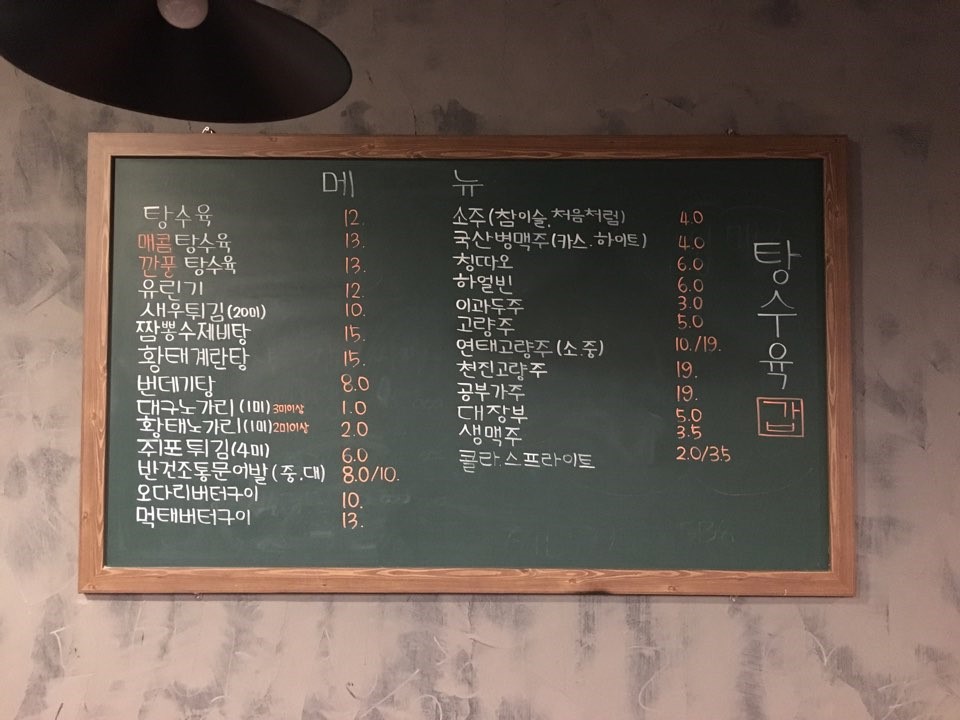 메 뉴
탕수육 12.
매콤 탕수육 13.
깐풍 탕수육 13.
유린기 12.
새우튀김(20미) 10.
짬뽕수제비탕 15.
황태계란탕 15.
번데기탕 8.0
대구노가리(1미)3미이상 1.0
황태노가리(1미)2미이상 2.0
쥐포튀김(4미) 6.0
반건조통문어발(중.대) 8.0/10.
오다리버터구이 10.
먹태버터구이 13.
소주(참이슬,처음처럼) 4.0
국산병맥주(카스.하이트) 4.0
칭따오 6.0
하얼빈 6.0
이과두주 3.0
고량주 5.0
연태고량주(소.중) 10./19.
천진고량주 19.
공부가주 19.
대장부 5.0
생맥주 3.5
콜라.스프라이트 2.0/3.5
탕수육갑